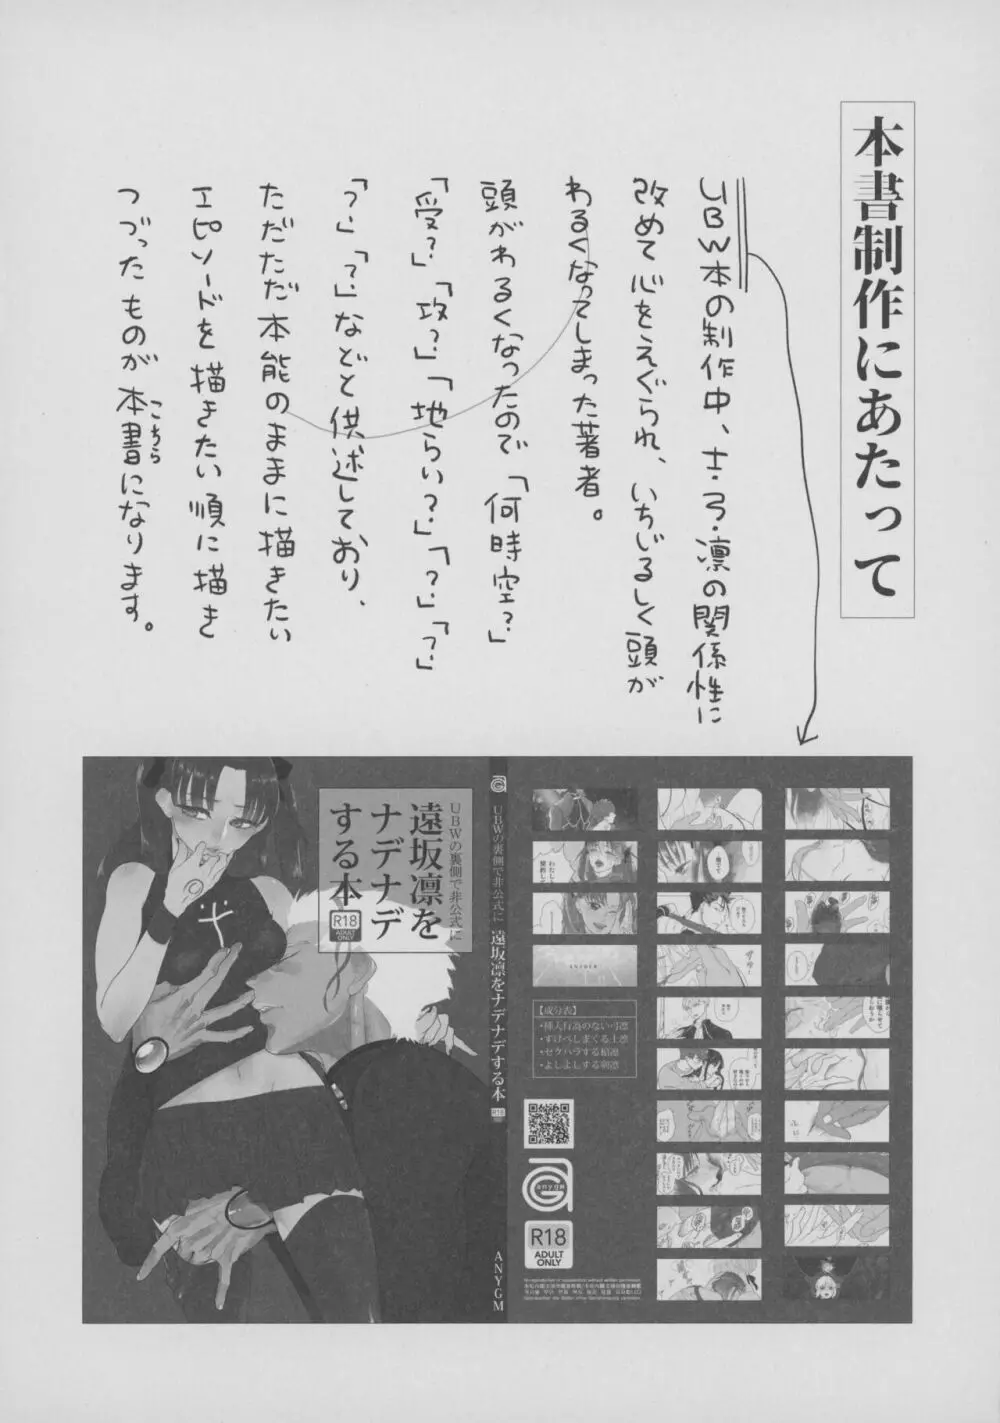 本書制作にあたって
UBW本の制作中、士・弓・凛の関係性に
改めて心をえぐられ、いちじるしく頭が
わるくなってしまった著者。
頭がわるくなったので「何時空?」
「受?」「攻?」「地らい?」「?」「?」
「?」「?」などと供述しており、
ただただ本能のままに描きたい
エピソードを描きたい順に描き
つづったものが本書になります。
こちら
UBWの裏側で非公式に
遠坂凛を
ナデナデ
する本
R18
ADULT
ONLY
UBWの裏側で非公式に 遠坂凛をナデナデする本
R18
ANYGM
【成分表】
・挿入行為のない弓凛
・すけべしまくる士凛
・セクハラする槍凛
・よしよしする剣凛
anygm
R18
ADULT
ONLY